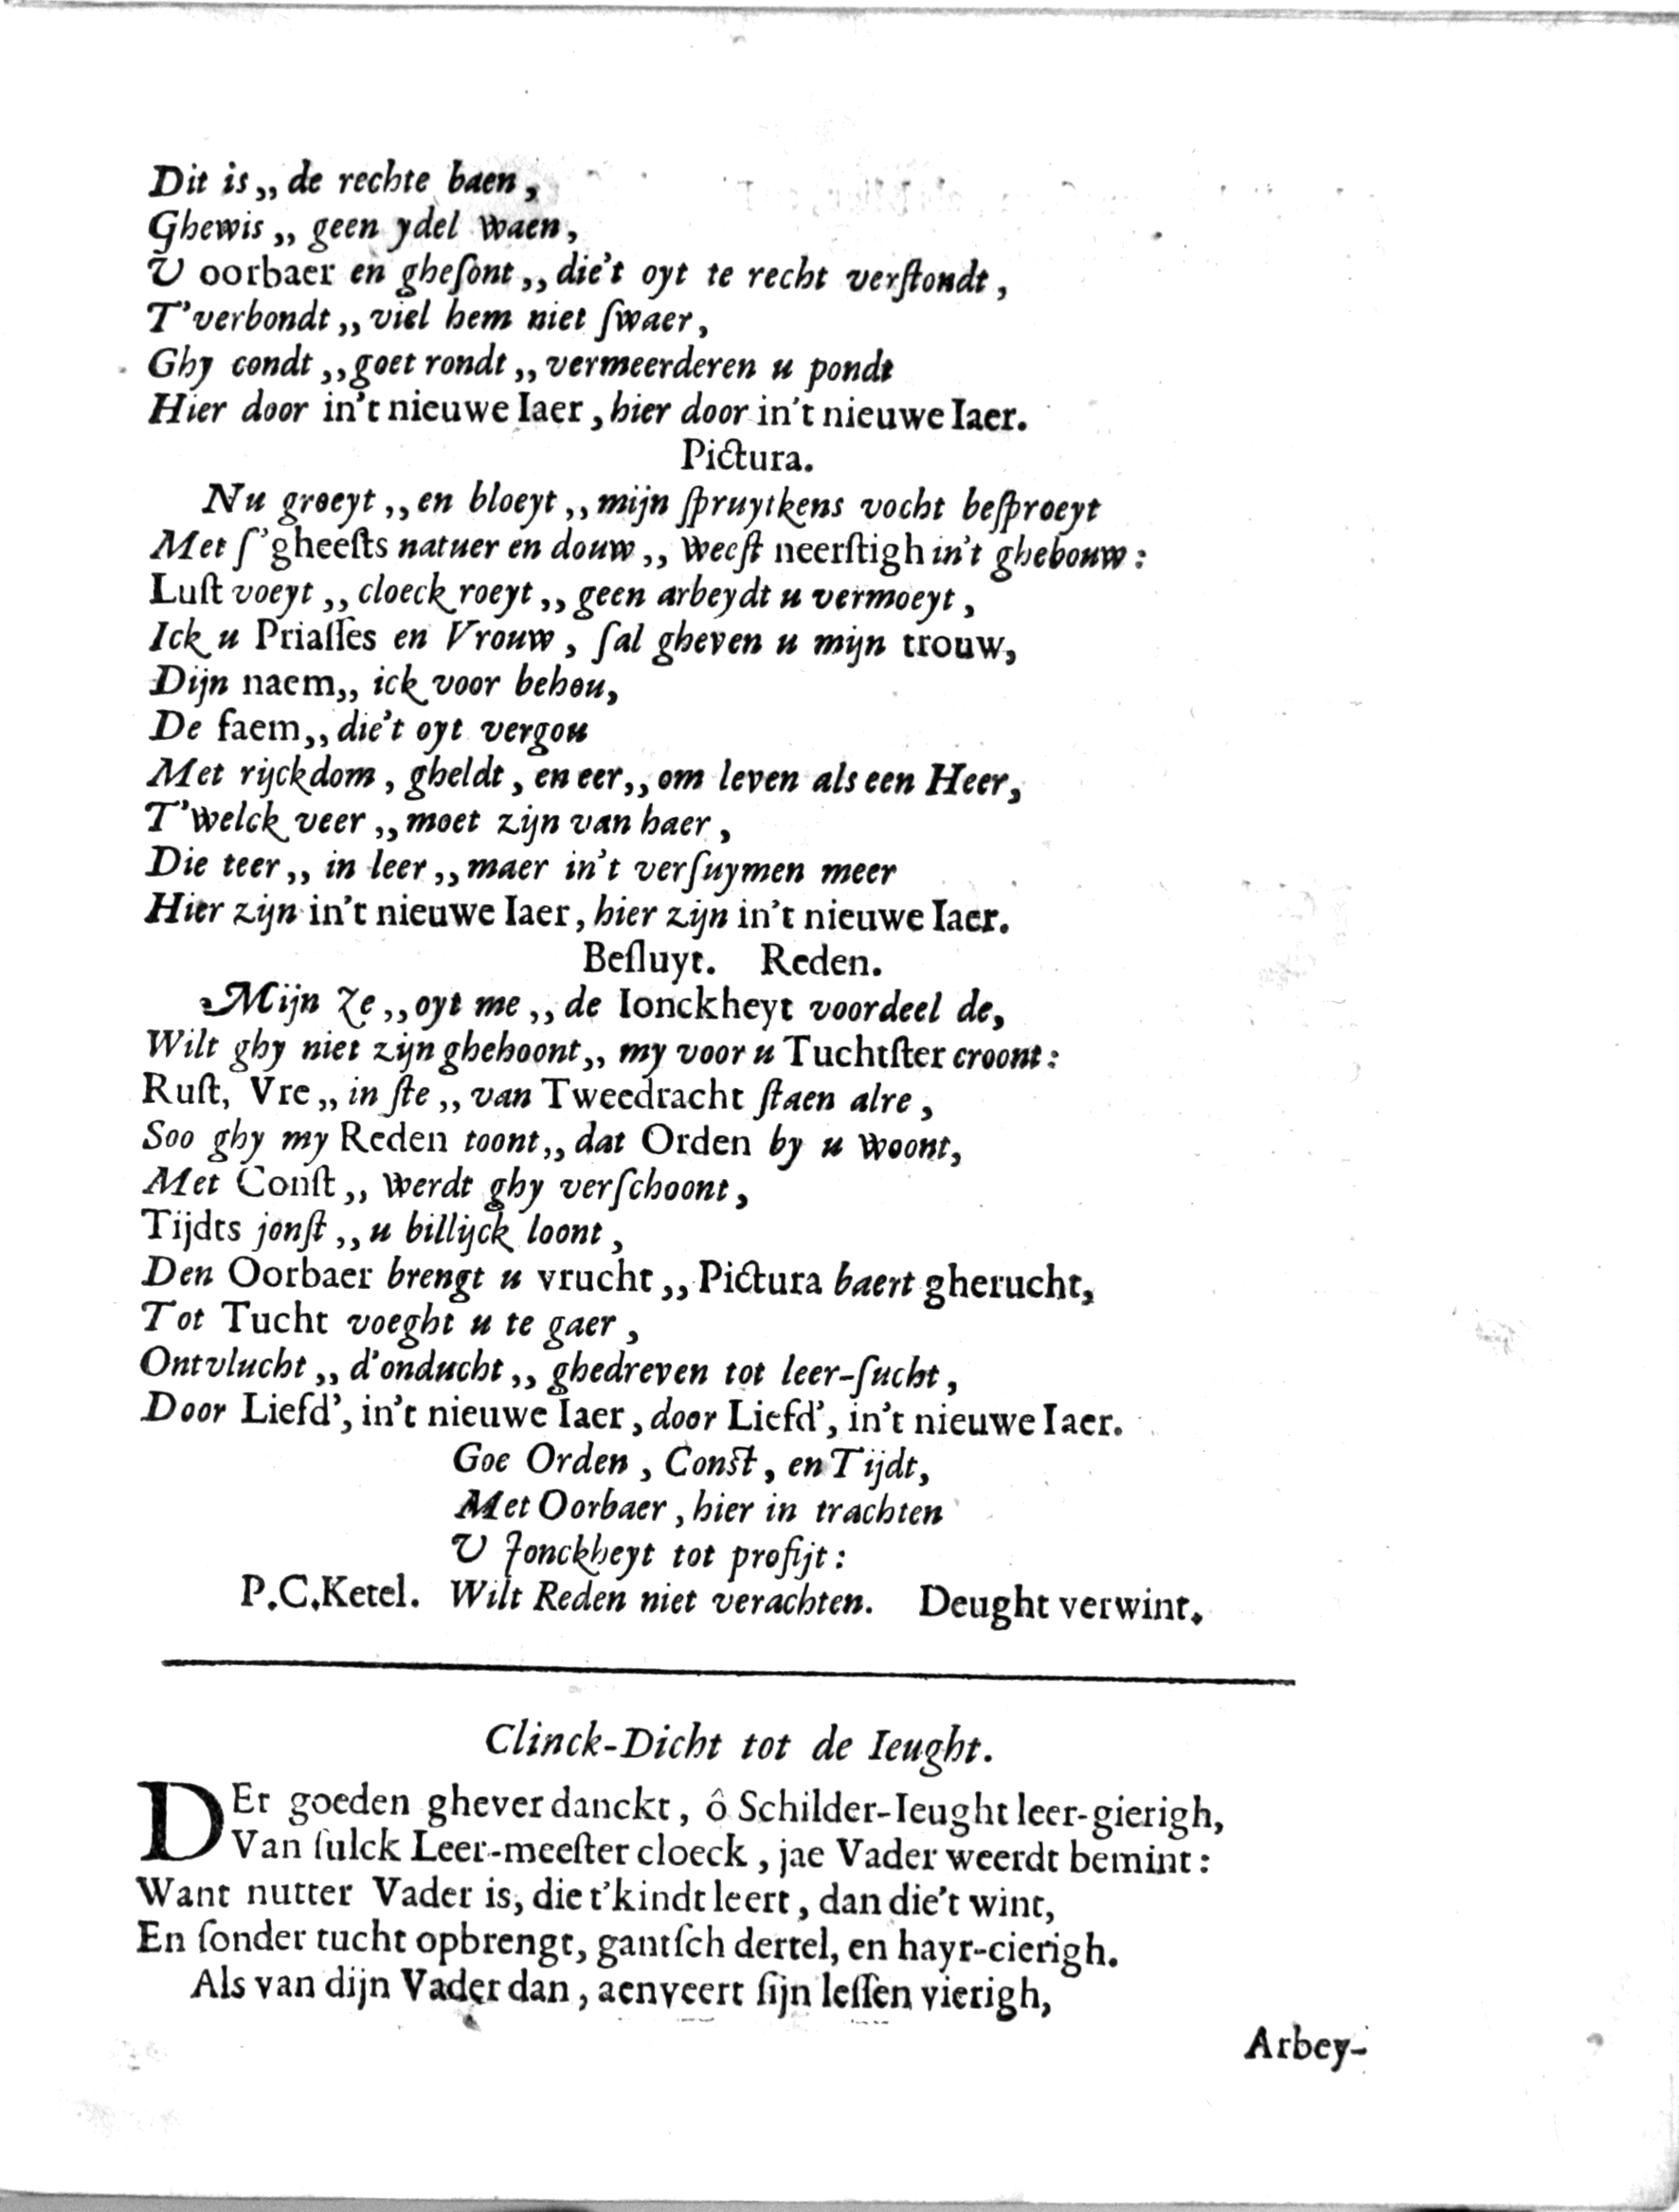 Dit is,, de rechte baen,
Ghewis,, geen ydel waen,
V oorbaer en gheſont,, die't oyt te recht verſtondt,
T'verbondt,, viel hem niet ſwaer,
Ghy condt,, goet rondt,, vermeerderen u pondt
Hier door in't nieuwe Iaer, hier door in't nieuwe Iaer.
Pictura.
Nu groeyt,, en bloeyt,, mijn ſpruytkens vocht beſproeyt
Met ſ'gheeſts natuer en douw,, weeſt neerſtigh in't ghebouw:
Luſt voeyt,, cloeck roeyt,, geen arbeydt u vermoeyt,
Ick u Priaſſes en Vrouw, ſal gheven u mijn trouw,
Dijn naem,, ick voor behou,
De faem,, die't oyt vergou
Met rijckdom, gheldt, en eer,, om leven als een Heer,
T'welck veer,, moet zijn van haer,
Die teer,, in leer,, maer in't verſuymen meer
Hier zijn in't nieuwe Iaer, hier zijn in't nieuwe Iaer.
Beſluyt. Reden.
Mijn Ze,, oyt me,, de Ionckheyt voordeel de,
Wilt ghy niet zijn ghehoont,, my voor u Tuchtſter croont:
Ruſt, Vre,, in ſte,, van Tweedracht ſtaen alre,
Soo ghy my Reden toont,, dat Orden by u woont,
Met Conſt,, werdt ghy verſchoont,
Tijdts jonſt,, u billijck loont,
Den Oorbaer brengt u vrucht,, Pictura baert gherucht,
Tot Tucht voeght u te gaer,
Ontvlucht,, d'onducht,, ghedreven tot leer-ſucht,
Door Liefd', in't nieuwe Iaer, door Liefd', in't nieuwe Iaer.
Goe Orden, Conſt, en Tijdt,
Met Oorbaer, hier in trachten
V Jonckheyt tot profijt:
P.C.Ketel. Wilt Reden niet verachten. Deught verwint.
Clinck-Dicht tot de Ieught.
DEr goeden ghever danckt, ô Schilder-Ieught leer-gierigh,
Van ſulck Leer-meeſter cloeck, jae Vader weerdt bemint:
Want nutter Vader is, die t'kindt leert, dan die't wint,
En ſonder tucht opbrengt, gantſch dertel, en hayr-cierigh.
Als van dijn Vader dan, aenveert ſijn leſſen vierigh,
Arbey-